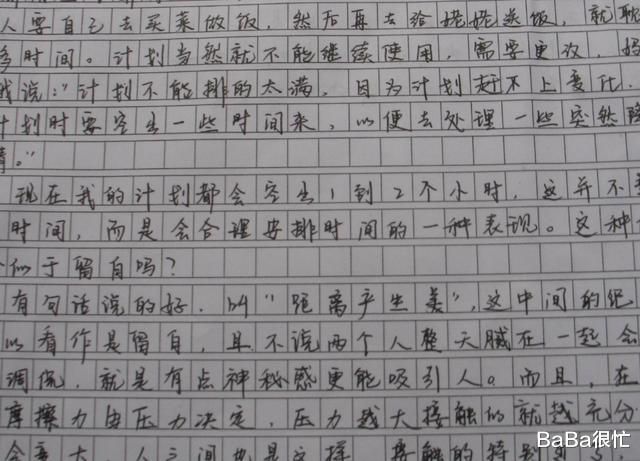 人要自己去买菜做饭，然后再去给姥姥送饭，就
多时间。计划当然就不能继续使用，需要更改，
我说："计划不能排的太满，因为计划赶不上变化.
计划时要空出一些时间来，以便去处理一些突然
情。"
现在我的计划都会空出1到2个小时，这并不
时间，而是会合理安排时间的一种表现。这种
似于留白吗？
有句话说的好，叫"距离产生美"，这中间的距
以看作是留白，且不说两个人整天腻在一起会
调侃，就是有点神秘感更能吸引人。而且，在
摩擦力由压力决定，压力越大接触的就越充分
会变大，人之间也是这样，接触的特别
BaBa很忙